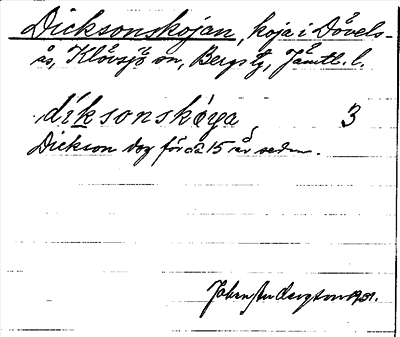 Dicksonskojan, koja i Dövels-
ås, Klövsjö sn, Bergs tg, Jämtl. l.
díksonskøya 3
Dickson dog för c:a 15 år sedan.
Johan 1931.